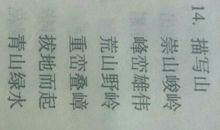 14. 描写山
崇山峻岭
峰峦雄伟
荒山野岭
重峦叠嶂
拔地而起
青山绿水